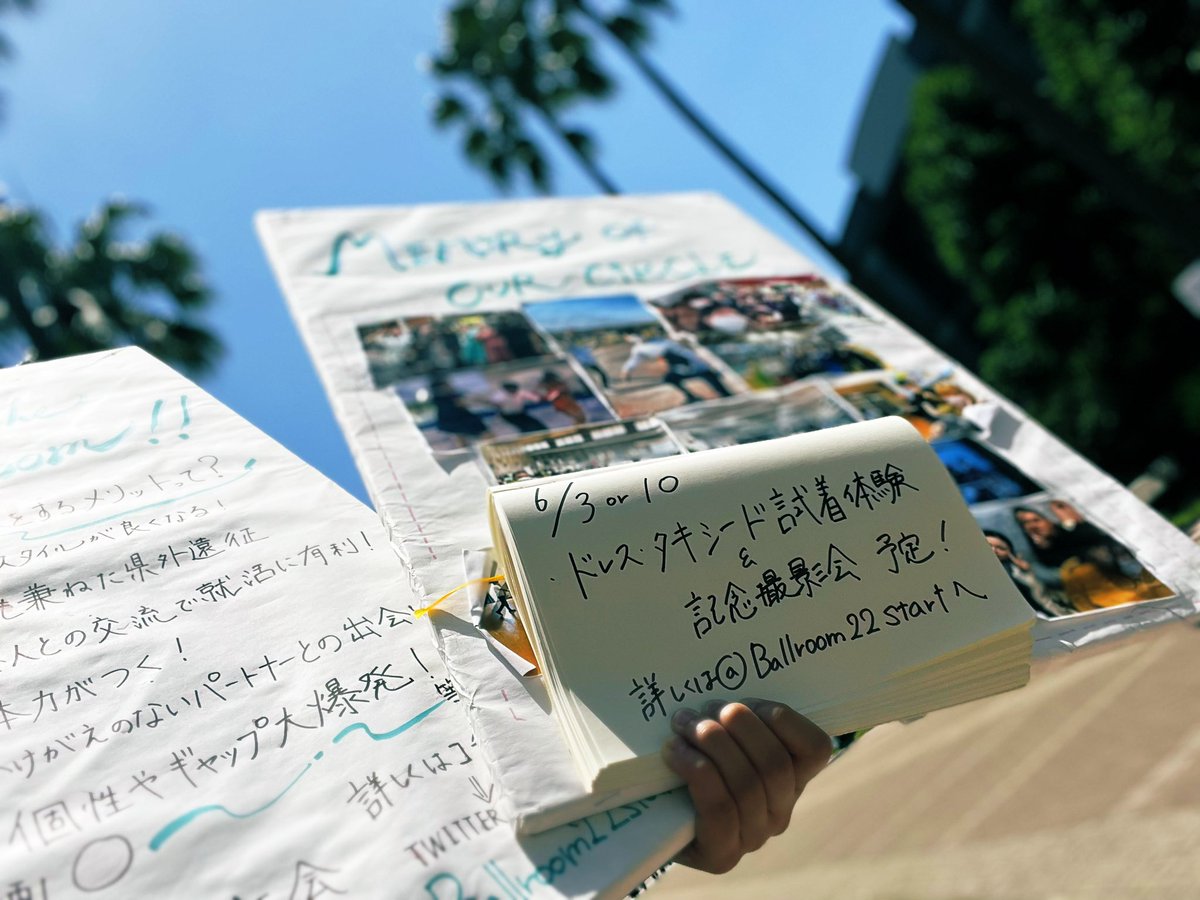 MEMORY OF
OUR CIRCLE
6/3 or 10
・ドレス・タキシード試着体験
&
記念撮影会 予定!
詳しくは@Ballroom22startへ
!!
をするメリットって?
スタイルが良くなる!
も兼ねた県外遠征
人との交流で就活に有利!
体力がつく!
かけがえのないパートナーとの出会い
個性やギャップ大爆発! 等
詳しくは
TWITTER
Ballroom22st
会